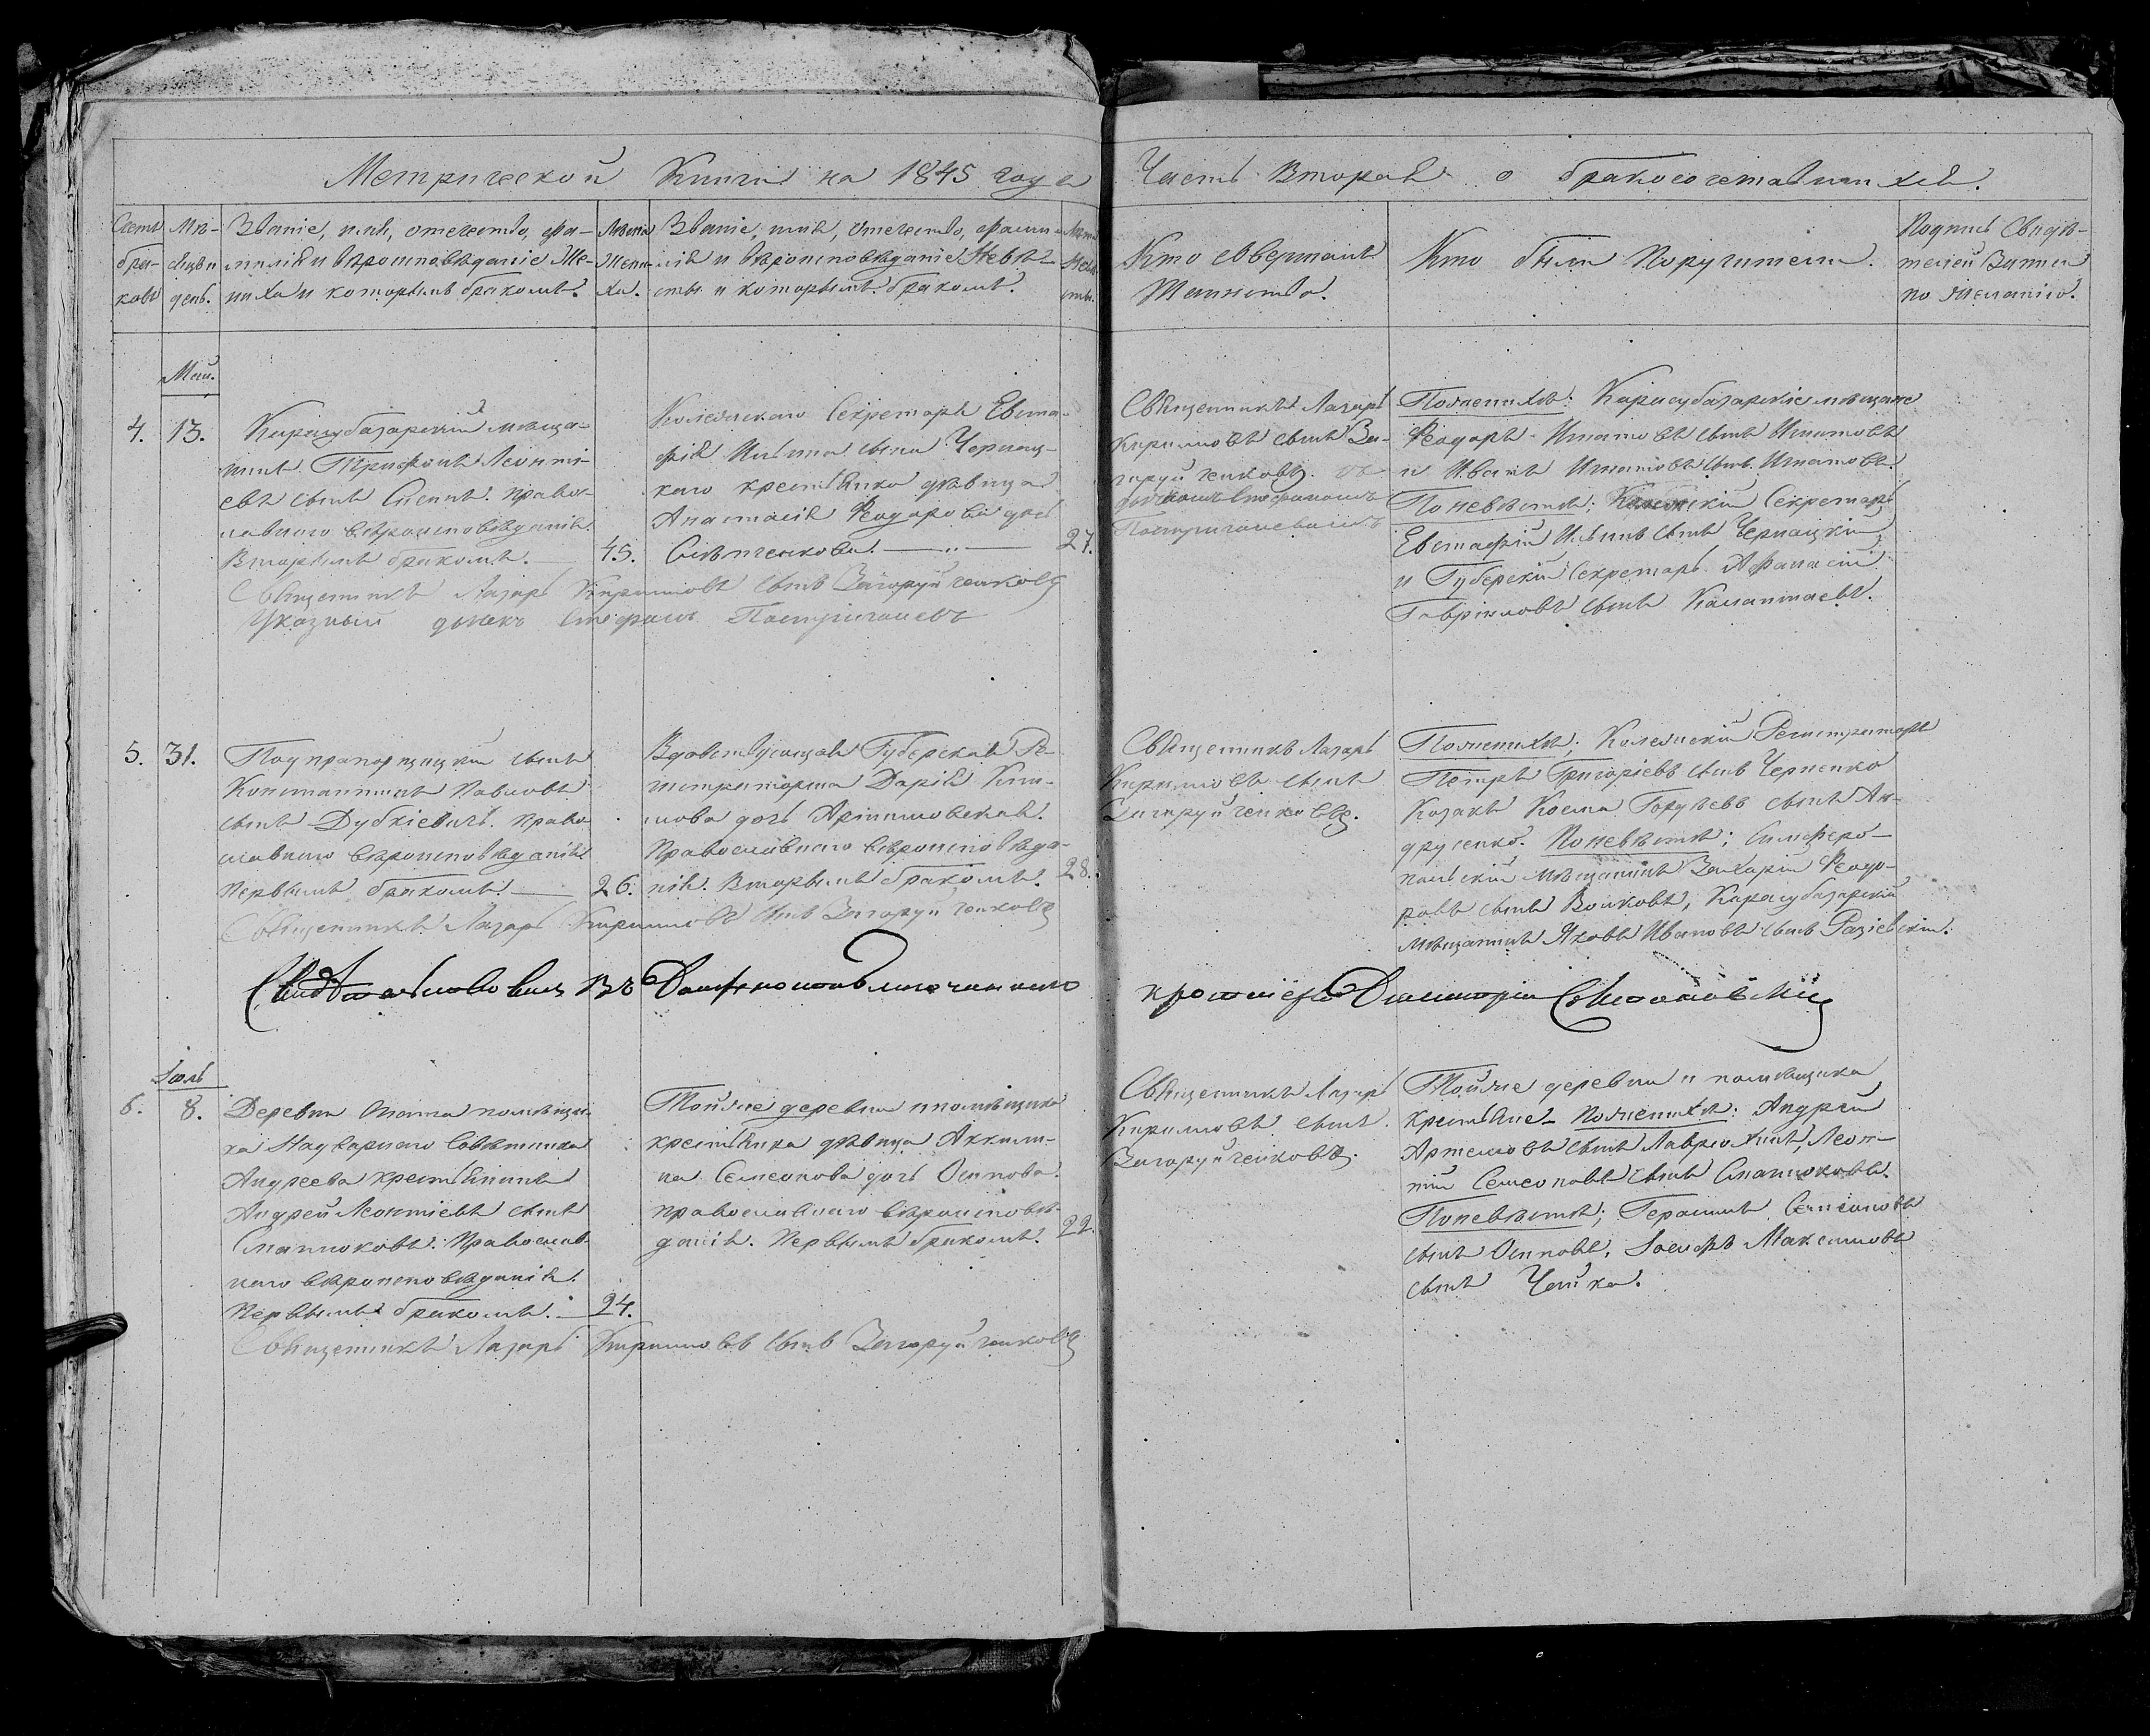 Метрической Книги на 1845 года
Часть Вторая о бракосочетавшихся.
Счетъ браковъ
Мѣсяцъ и день.
Званіе, имя, отечество, фа-
милія и вѣроисповѣданіе Же-
ниха и которымъ бракомъ.
Лѣта
Жени-
ха.
Званіе, имя, отечество, фами-
лія и вѣроисповѣданіе Невѣ-
сты и которымъ бракомъ.
Лѣта
Невѣ
сты.
Кто совершалъ
Таинство.
Кто были Поручители.
Подпись Свидѣ-
телей Записи
по желанію.
Май.
4. 13.
Карасубазарскій мѣща-
нинъ Трифонъ Леонті-
евъ сынъ правос-
лавнаго вѣроисповѣданія.
Вторымъ бракомъ.
45.
Колежскаго Секретаря Евста-
фія Ильина сына Чернац-
каго крестьянка дѣвица
Анастасія Ѳеодорова дочь
27.
Священникъ Лазарь
Кириловъ сынъ За-
горуйченковъ. съ
дьячкомъ Стефаномъ
По женихѣ: Карасубазарскіе мѣщане
Ѳеодоръ Игнатовъ сынъ Игнатовъ
и Иванъ Игнатовъ сынъ Игнатовъ.
По невѣстѣ: Колежскій Секретарь
Евстафій Ильинъ сынъ Чернацкій,
и Губерскій Секретарь Афанасій
Гавріиловъ сынъ Калантаевъ.
Священникъ Лазарь Кириловъ сынъ Загоруйченковъ
Указный дьячекъ Стефанъ
5. 31.
Подпрапорщицкій сынъ
Константинъ Павловъ
сынъ Дубкіевичъ. право
славнаго вѣроисповѣданія
первымъ бракомъ.
26.
Вдовствующая Губерская Ре-
гистраторша Дарія Кли-
мова дочь
Православнаго вѣроисповѣда-
нія. Вторымъ бракомъ.
28.
Священникъ Лазарь
Кириловъ сынъ
Загоруйченковъ.
По женихѣ; Колежскій Регистраторъ
Петръ Григоріевъ сынъ Черненко
Козакъ Косма сынъ Ан-
друсенко. По невѣстѣ; Симферо-
польскій мѣщанинъ Захарій Ѳеодо-
ровъ сынъ Волковъ, Карасубазарскій
мѣщанинъ Яковъ Ивановъ сынъ
Священникъ Лазарь Кириловъ сынъ Загоруйченковъ
Свидѣтельствовалъ Въ
протоіерей Димитрій
Іюль
6. 8.
Деревни помѣщи-
ка Надворнаго Совѣтника
Андреева крестьянинъ
Андрей Леонтіевъ сынъ
Православ-
наго вѣроисповѣданія.
Первымъ бракомъ.
24.
Той же деревни и помѣщика
крестьянка дѣвица Аккили-
на Семеонова дочь Осипова.
православнаго вѣроисповѣ-
данія. Первымъ бракомъ.
22.
Священникъ Лазарь
Кириловъ сынъ
Загоруйченковъ.
Той же деревни и помѣщика
крестьяне. По женихѣ: Андрей
Артемовъ сынъ Леон-
тій Семеоновъ сынъ
По невѣстѣ; Герасимъ Семеоновъ
сынъ Осиповъ, Іосифъ Максимовъ
сынъ Чайка.
Священникъ Лазарь Кириловъ сынъ Загоруйченковъ